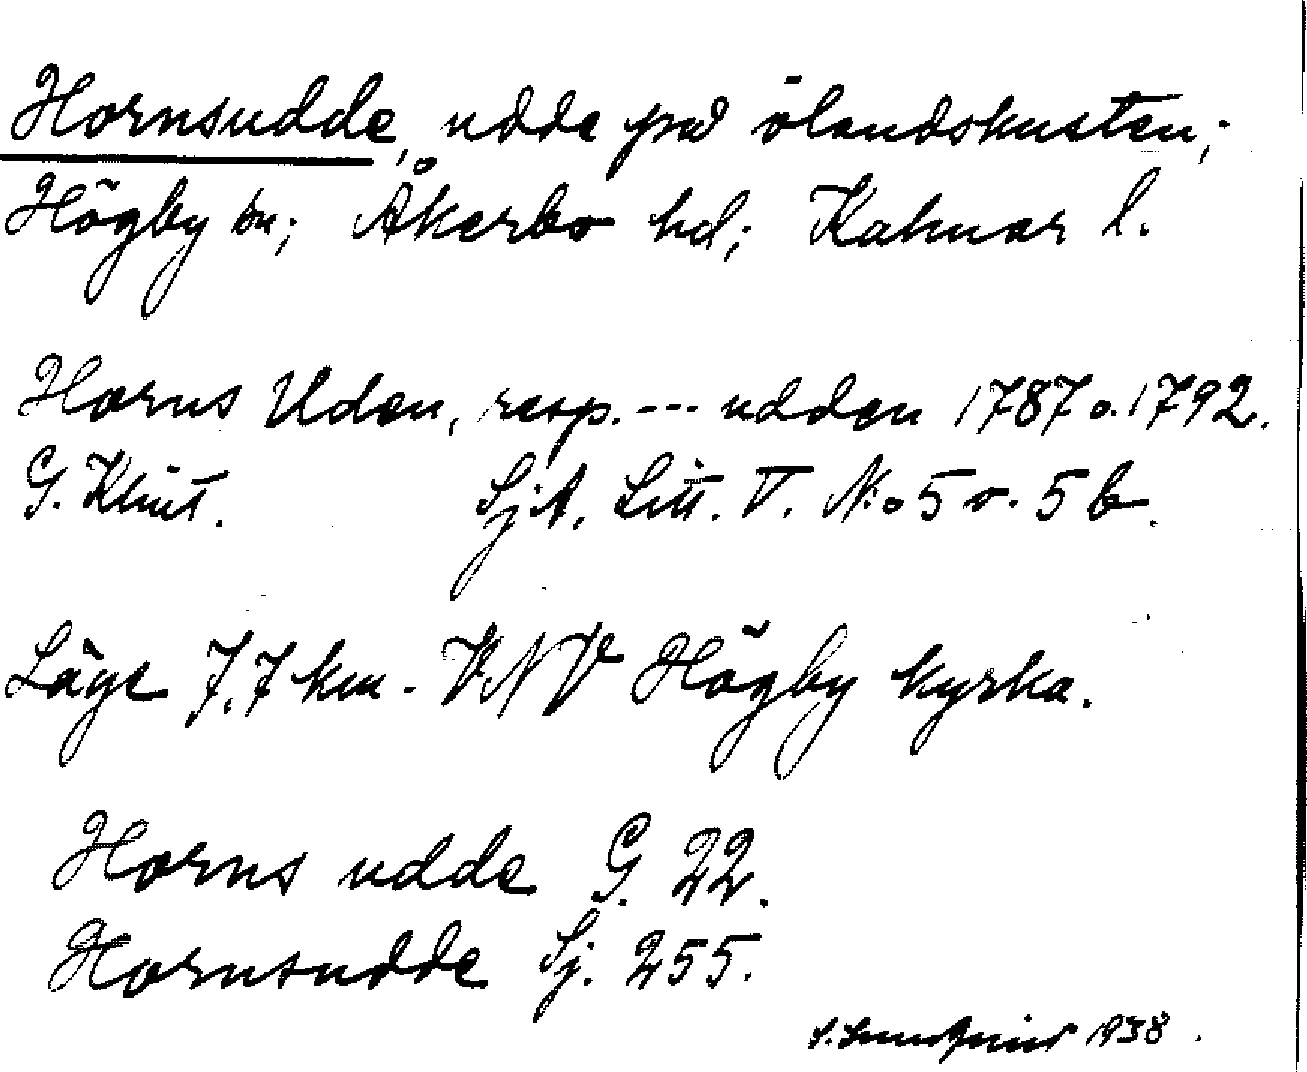 Hornsudde, udde på ölandskusten;
Högby sn; Åkerbo hd; Kalmar l.
Horns Uden, resp. --- udden 1787 o. 1792.
G. Klint. SjA. Litt. V. N:o 5 o. 5 b.
Läge 7,7 km. VNV Högby kyrka.
Horns udde G. 22.
Hornsudde Sj. 255.
1938.